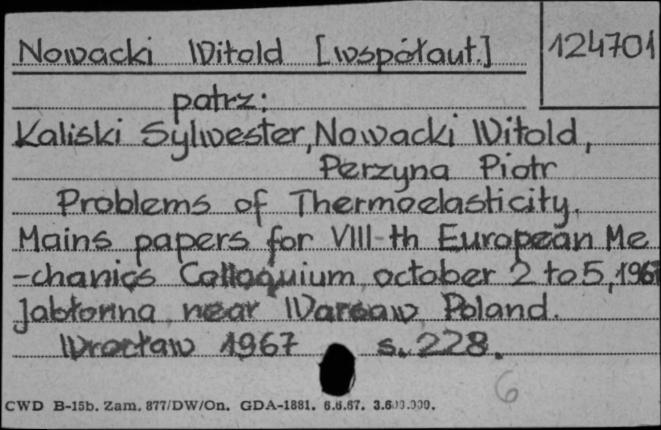 Nowacki Witold [współaut.] 124701
patrz:
Kaliski Sylwester, Nowacki Witold,
Perzyna Piotr
Problems of Thermoelasticity.
Mains papers for VIII-th European Me
-chanics Colloquium, october 2 to 5, 1967
Jabłonna near Warsaw, Poland.
Wrocław 1967 s. 228.
6
CWD B-15b. Zam. 877/DW/On. GDA-1881. 6.6.67. 3.600.000.